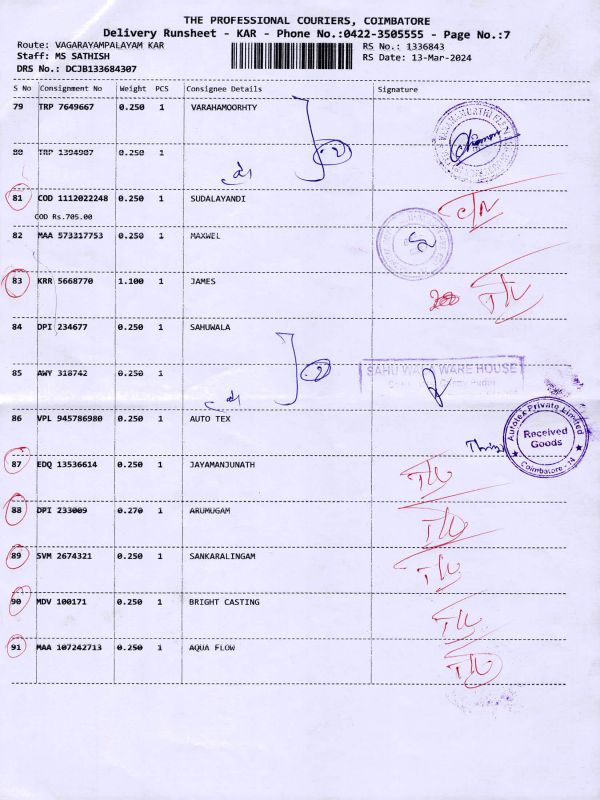 THE PROFESSIONAL COURIERS, COIMBATORE
Delivery Runsheet - KAR - Phone No.:0422-3505555 - Page No.:7
Route: VAGARAYAMPALAYAM KAR
RS No.: 1336843
Staff: MS SATHISH
RS Date: 13-Mar-2024
DRS No.: DCJB133684307
S No Consignment No Weight PCS Consignee Details Signature
79 TRP 7649667 0.250 1 VARAHAMOORHTY
80 TRP 1394907 0.250 1
81 COD 1112022248 0.250 1 SUDALAYANDI
COD Rs.705.00
82 MAA 573317753 0.250 1 MAXWEL
83 KRR 5668770 1.100 1 JAMES
84 DPI 234677 0.250 1 SAHUWALA
85 AWY 318742 0.250 1
SAHUWALA WARE HOUSE
86 VPL 945786980 0.250 1 AUTO TEX
Autotex Private Limited
Received
Goods
Coimbatore - 14
87 EDQ 13536614 0.250 1 JAYAMANJUNATH
88 DPI 233009 0.270 1 ARUMUGAM
89 SVM 2674321 0.250 1 SANKARALINGAM
90 MDV 100171 0.250 1 BRIGHT CASTING
91 MAA 107242713 0.250 1 AQUA FLOW